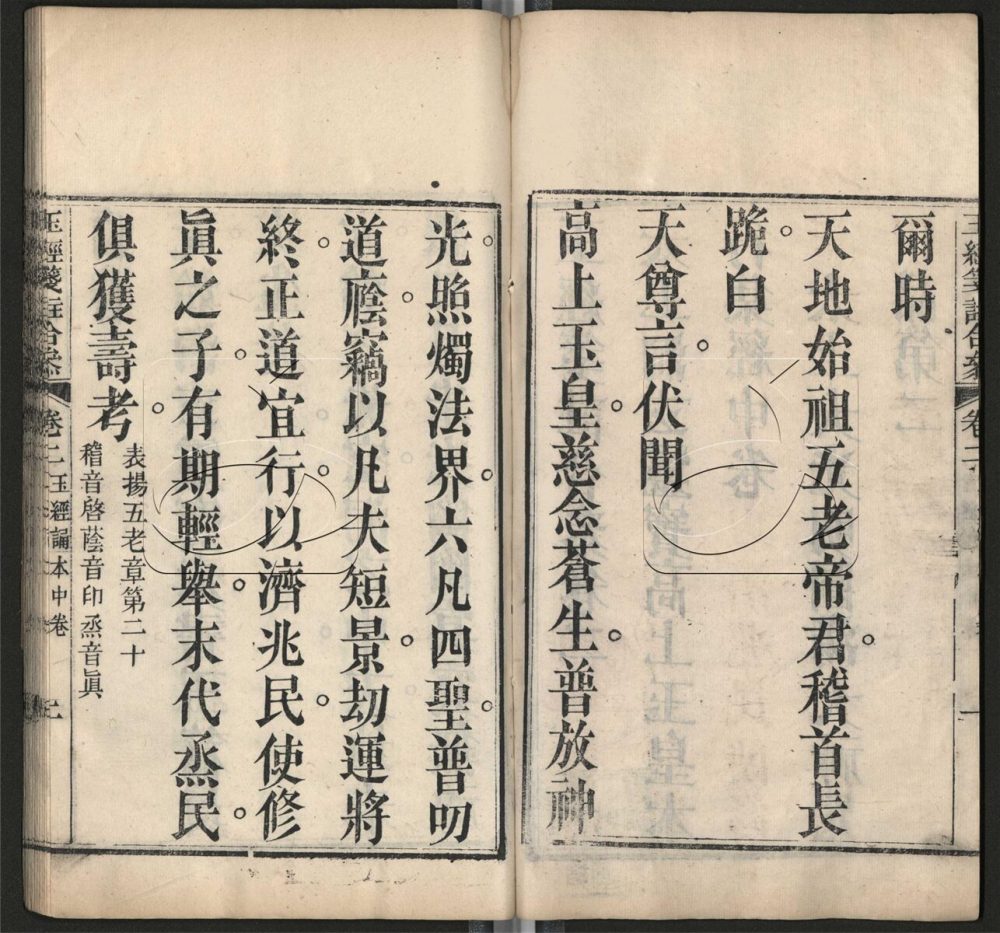 玉經箋註合參 卷二 一
爾時
天地始祖五老帝君。稽首長
跪。白
天尊言。伏聞
高上玉皇。慈念蒼生。普放神
光。照燭法界。六凡四聖。普叨
道廕。竊以凡夫短景。劫運將
終。正道宜行。以濟兆民。使修
眞之子。有期輕舉。末代烝民。
俱獲壽考。
表揚五老章第二十
稽音啓蔭音印烝音眞
玉經箋註合參 卷二 玉經誦本中卷